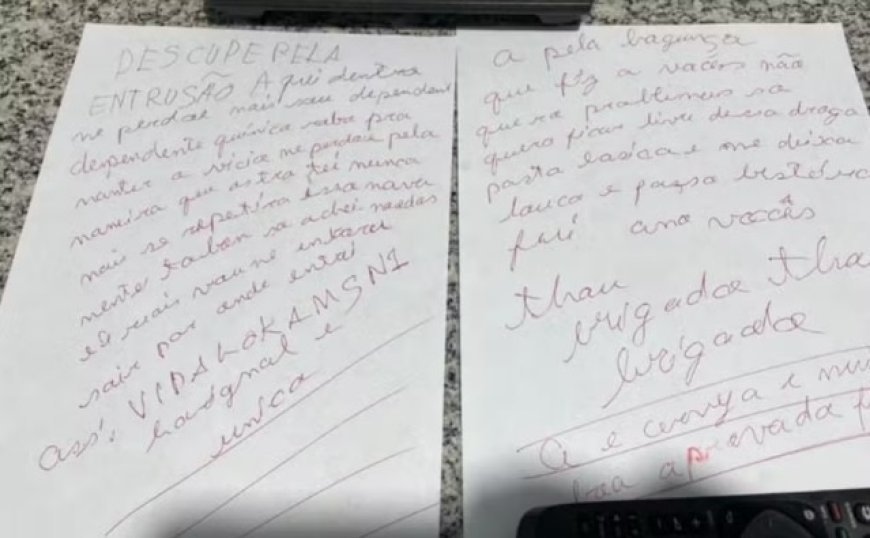 DESCUPE PELA
ENTRUSÃO A qui dentra
me perdae mais sau dependent
despendente química raba pra
manter a vicia me perdau pela
maneira que astra tei nunca
mais se repetira essa nava
mente tabon so achei maedas
e mais vau me
sair por ande entrei
ass: VIDALOKA MSN1
horignal e
unica
a pela bagunça
que fiz a vacês não
quera problemas sa
quera ficar livre dessa draga
pasta basica e me deixa
lauca e passa
fui ama vacês
thau
brigadoa tha
brigadoa
a e cerveja e mui
aprovada